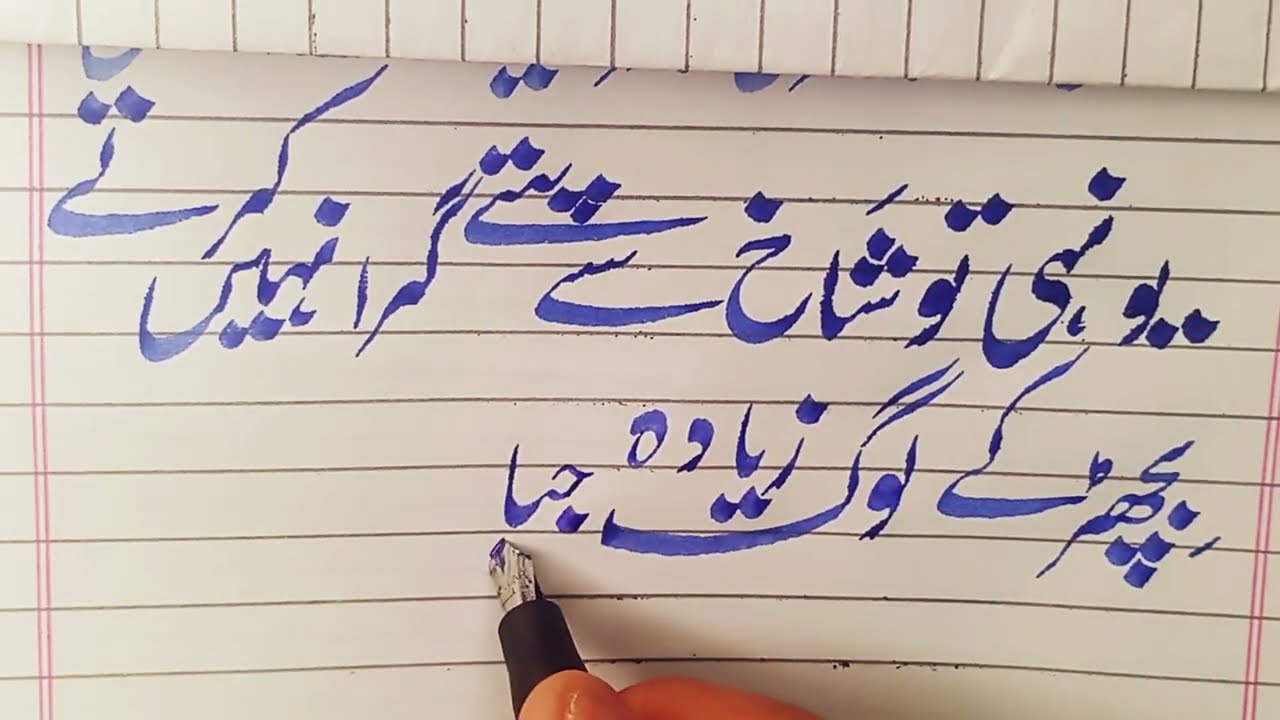 یونہی تو شاخ سے پتے گرا نہیں کرتے
بچھڑ کے لوگ زیادہ جیا